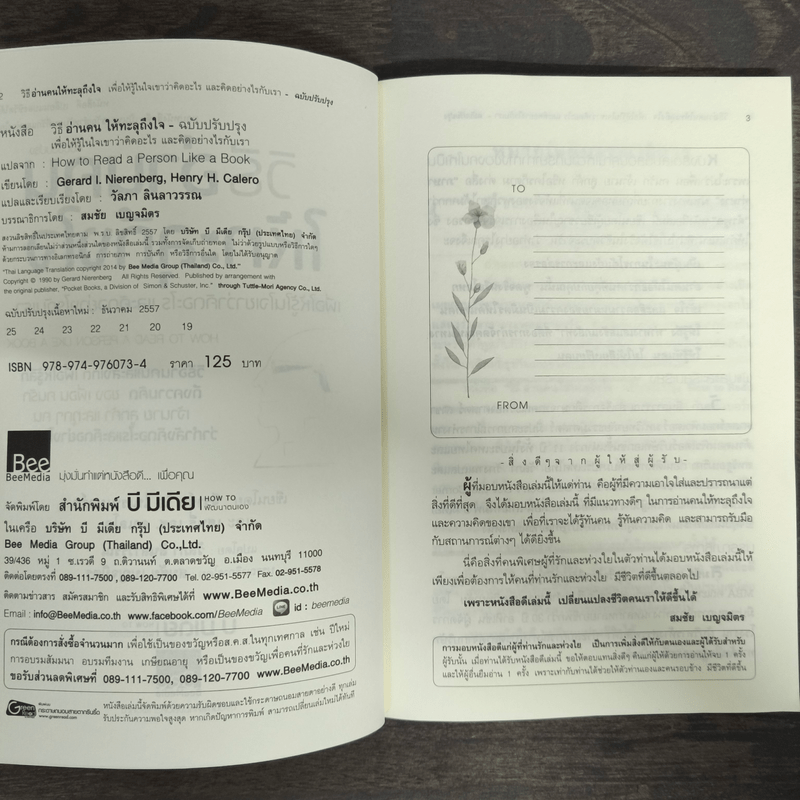 2 วิธีอ่านคนให้ทะลุถึงใจ เพื่อให้รู้ในใจเขาว่าคิดอะไร และคิดอย่างไรกับเรา - ฉบับปรับปรุง
หนังสือ วิธีอ่านคน ให้ทะลุถึงใจ - ฉบับปรับปรุง
เพื่อให้รู้ในใจเขาว่าคิดอะไร และคิดอย่างไรกับเรา
แปลจาก : How to Read a Person Like a Book
เขียนโดย : Gerard I. Nierenberg, Henry H. Calero
แปลและเรียบเรียงโดย : วัลภา ลินลาวรรณ
บรรณาธิการโดย : สมชัย เบญจมิตร
สงวนลิขสิทธิ์ในประเทศไทยตาม พ.ร.บ ลิขสิทธิ์ 2557 โดย บริษัท บี มีเดีย กรุ๊ป (ประเทศไทย) จำกัด
ห้ามการลอกเลียนไม่ว่าส่วนหนึ่งส่วนใดของหนังสือเล่มนี้ รวมทั้งการจัดเก็บถ่ายทอด ไม่ว่าด้วยรูปแบบหรือวิธีการใดๆ
ด้วยกระบวนการทางอิเลกทรอนิกส์ การถ่ายภาพ การบันทึก หรือวิธีการอื่นใด โดยไม่ได้รับอนุญาต
"Thai Language Translation copyright 2014 by Bee Media Group (Thailand) Co., Ltd."
Copyright © 1990 by Gerard Nierenberg All Rights Reserved. Published by arrangement with
the original publisher, "Pocket Books, a Division of Simon & Schuster, Inc." through Tuttle-Mori Agency Co., Ltd.
ฉบับปรับปรุงเนื้อหาใหม่ : ธันวาคม 2557
25 24 23 22 21 20 19
ISBN 978-974-976073-4 ราคา 125 บาท
Bee
BeeMedia มุ่งมั่นทำแต่หนังสือดี... เพื่อคุณ
จัดพิมพ์โดย สำนักพิมพ์ บี มีเดีย HOW TO
พัฒนาตนเอง
ในเครือ บริษัท บี มีเดีย กรุ๊ป (ประเทศไทย) จำกัด
Bee Media Group (Thailand) Co.,Ltd.
39/436 หมู่ 1 ซ.เรวดี 9 ถ.ติวานนท์ ต.ตลาดขวัญ อ.เมือง นนทบุรี 11000
ติดต่อโดยตรงที่ 089-111-7500, 089-120-7700 Tel. 02-951-5577 Fax. 02-951-5578
ติดตามข่าวสาร สมัครสมาชิก และรับสิทธิพิเศษได้ที่ www.BeeMedia.co.th
Email : info@BeeMedia.co.th www.facebook.com/BeeMedia LINE id : beemedia
กรณีต้องการสั่งซื้อจำนวนมาก เพื่อใช้เป็นของขวัญหรือส.ค.ส.ในทุกเทศกาล เช่น ปีใหม่
การอบรมสัมมนา อบรมทีมงาน เกษียณอายุ หรือเป็นของขวัญเพื่อคนที่รักและห่วงใย
ขอรับส่วนลดพิเศษที่ 089-111-7500, 089-120-7700 www.BeeMedia.co.th
Green Read
กระดาษถนอมสายตากรีนรี้ด
www.greenread.com
หนังสือเล่มนี้จัดพิมพ์ด้วยความรับผิดชอบและใช้กระดาษถนอมสายตาอย่างดี ทุกเล่ม
รับประกันความพอใจสูงสุด หากเกิดปัญหาการพิมพ์ สามารถเปลี่ยนเล่มใหม่ได้ทันที
3
TO
FROM
- สิ่งดีๆจากผู้ให้สู่ผู้รับ -
ผู้ที่มอบหนังสือเล่มนี้ให้แด่ท่าน คือผู้ที่มีความเอาใจใส่และปรารถนาแต่
สิ่งที่ดีที่สุด จึงได้มอบหนังสือเล่มนี้ ที่มีแนวทางดีๆ ในการอ่านคนให้ทะลุถึงใจ
และความคิดของเขา เพื่อที่เราจะได้รู้ทันคน รู้ทันความคิด และสามารถรับมือ
กับสถานการณ์ต่างๆ ได้ดียิ่งขึ้น
นี่คือสิ่งที่คนพิเศษผู้ที่รักและห่วงใยในตัวท่านได้มอบหนังสือเล่มนี้ให้
เพียงเพื่อต้องการให้คนที่ท่านรักและห่วงใย มีชีวิตที่ดีขึ้นตลอดไป
เพราะหนังสือดีเล่มนี้ เปลี่ยนแปลงชีวิตคนเราให้ดีขึ้นได้
สมชัย เบญจมิตร
การมอบหนังสือดีแก่ผู้ที่ท่านรักและห่วงใย เป็นการเพิ่มสิ่งดีให้กับตนเองและผู้ได้รับสำหรับ
ผู้รับนั้น เมื่อท่านได้รับหนังสือดีเล่มนี้ ขอให้ตอบแทนสิ่งดีๆ คืนแก่ผู้ให้ด้วยการอ่านให้จบ 1 ครั้ง
และให้ผู้อื่นยืมอ่าน 1 ครั้ง เพราะเท่ากับท่านได้ช่วยให้ตัวท่านเองและคนรอบข้าง มีชีวิตที่ดีขึ้น